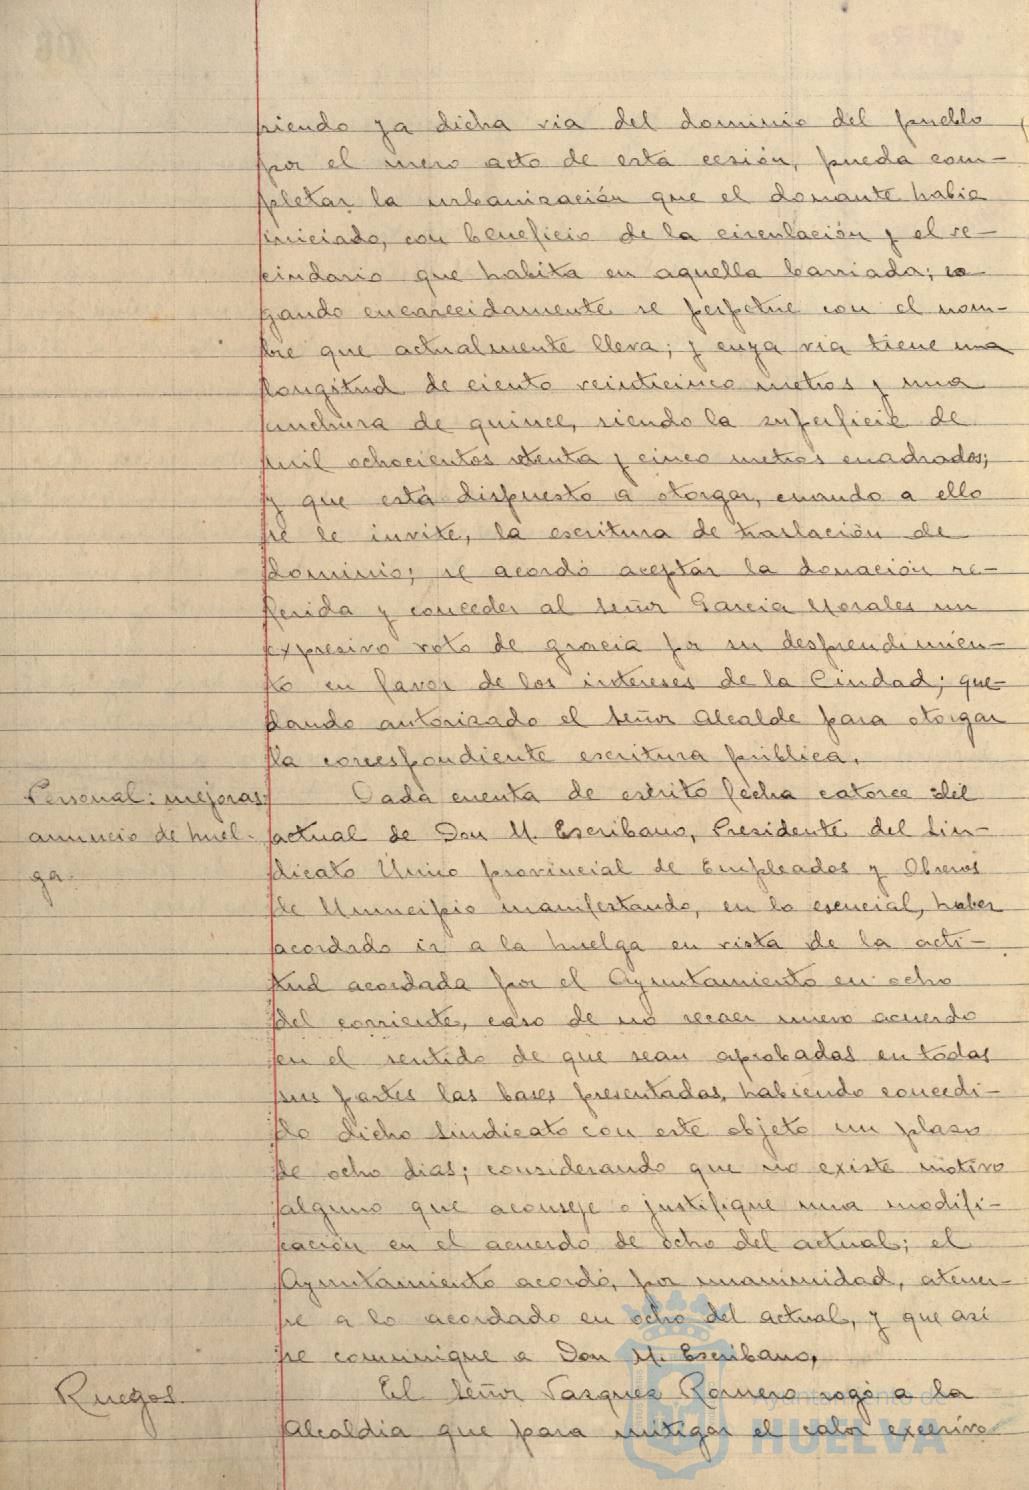 siendo ya dicha via del dominio del pueblo
por el mero acto de esta cesión, pueda com-
pletar la urbanización que el donante habia
iniciado, con beneficio de la circulación y el ve-
cindario que habita en aquella barriada; ro
gando encarecidamente se perpetue con el nom-
bre que actualmente lleva; y cuya via tiene una
longitud de ciento veinticinco metros y una
anchura de quince, siendo la superficie de
mil ochocientos setenta y cinco metros cuadrados;
y que está dispuesto a otorgar, cuando a ello
se le invite, la escritura de traslación de
dominio; se acordó aceptar la donación re-
ferida y conceder al Señor Garcia Morales un
expresivo voto de gracia por su desprendimien-
to en favor de los intereses de la Ciudad; que-
dando autorizado el Señor Alcalde para otorgar
la correspondiente escritura pública.
Personal: mejoras:
anuncio de huel-
ga.
Dada cuenta de escrito fecha catorce del
actual de Don M. Escribano, Presidente del Sin-
dicato Único provincial de Empleados y Obreros
de Municipio manifestando, en lo esencial, haber
acordado ir a la huelga en vista de la acti-
tud acordada por el Ayuntamiento en ocho
del corriente, caso de no recaer nuevo acuerdo
en el sentido de que sean aprobadas en todas
sus partes las bases presentadas, habiendo concedi-
do dicho Sindicato con este objeto un plazo
de ocho dias; considerando que no existe motivo
alguno que aconseje o justifique una modifi-
cación en el acuerdo de ocho del actual; el
Ayuntamiento acordó, por unanimidad, atener-
se a lo acordado en ocho del actual, y que asi
se comunique a Don M. Escribano.
Ruegos.
El Señor Vazquez Romero rogó a la
Alcaldia que para mitigar el calor excesivo
Ayuntamiento de
HUELVA